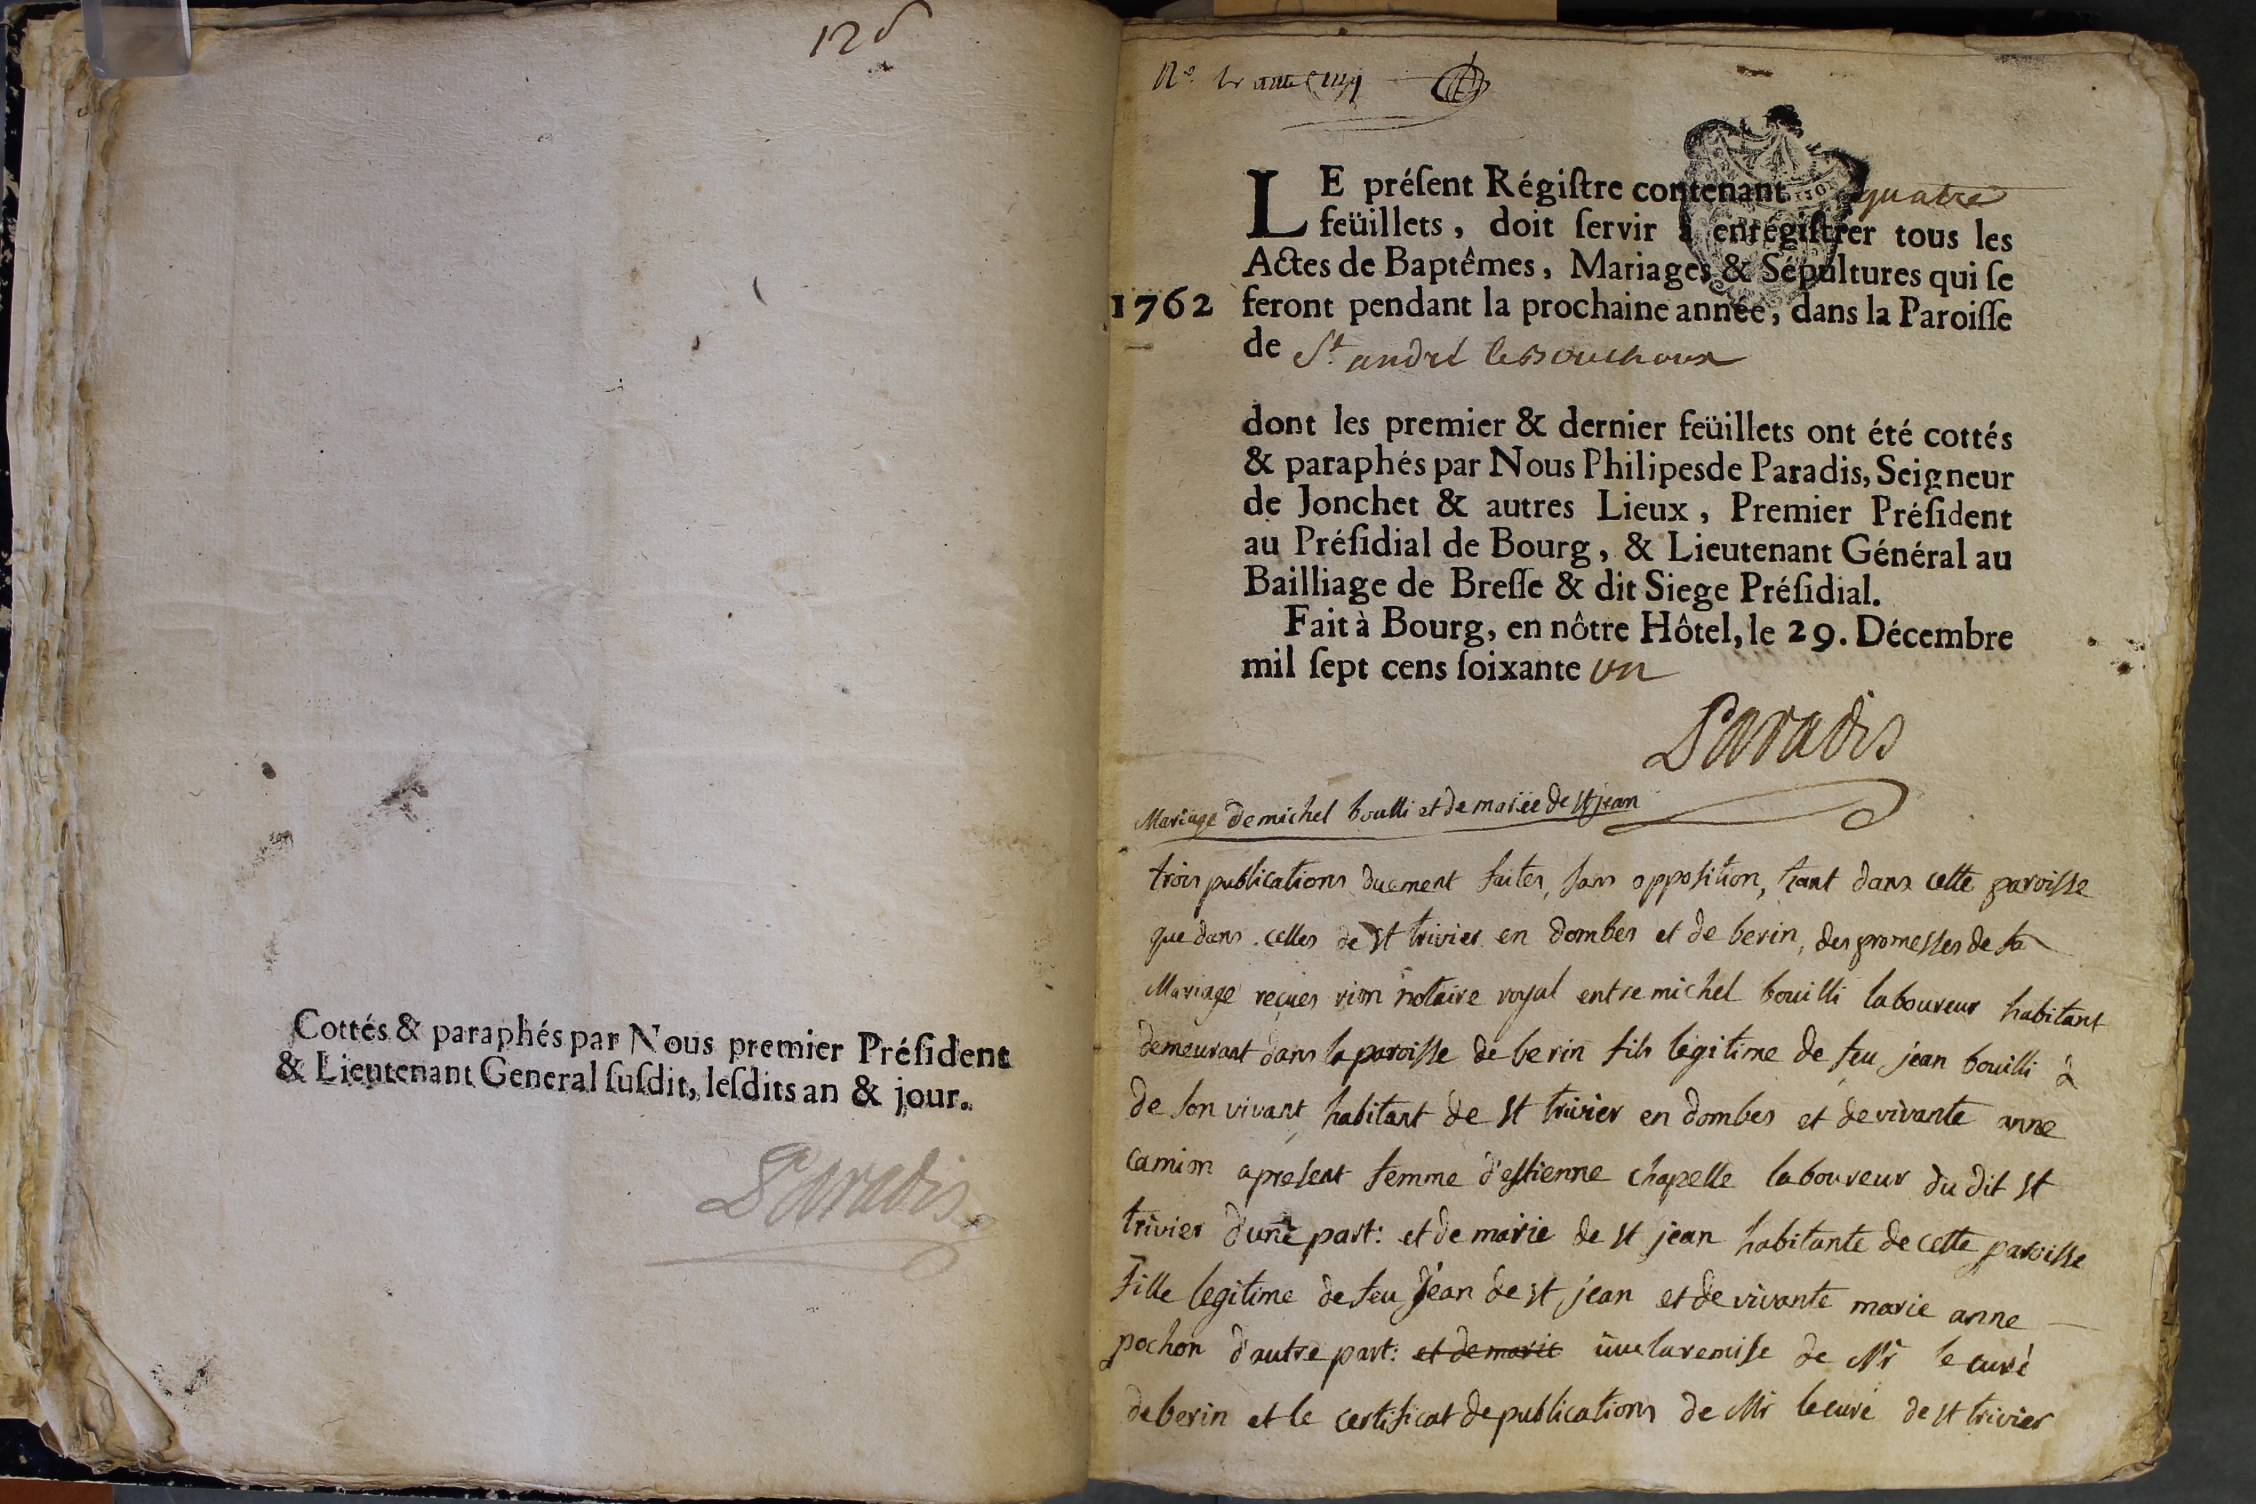 Cottés & paraphés par Nous premier Préſident
& Lieutenant General ſuſdit, leſdits an & jour.
Paradis
N.º
LE préſent Régiſtre contenant quatre
feüillets, doit ſervir à enrégiſtrer tous les
Actes de Baptêmes, Mariages & Sépultures qui ſe
1762 feront pendant la prochaine année, dans la Paroiſſe
de St. andré le Bouchoux
dont les premier & dernier feüillets ont été cottés
& paraphés par Nous Philipes de Paradis, Seigneur
de Jonchet & autres Lieux, Premier Préſident
au Préſidial de Bourg, & Lieutenant Général au
Bailliage de Breſſe & dit Siege Préſidial.
Fait à Bourg, en nôtre Hôtel, le 29. Décembre
mil ſept cens ſoixante un
Paradis
Mariage de michel boulli et de marie de st jean
trois publications duement faites, sans opposition, tant dans cette paroisse
que dans celles de st trivier en dombes et de berin, des promesses de
Mariage reçues notaire royal entre michel bouilli laboureur habitant
demeurant dans la paroisse de berin fils legitime de feu jean bouilli
de son vivant habitant de st trivier en dombes et de vivante anne
camion apresent femme d'estienne chapelle laboureur du dit st
trivier d'une part: et de marie de st jean habitante de cette paroisse
fille legitime de feu Jean de st jean et de vivante marie anne
pochon d'autre part: et de marie vue la remise de Mr le curé
de berin et le certificat de publications de Mr le curé de st trivier